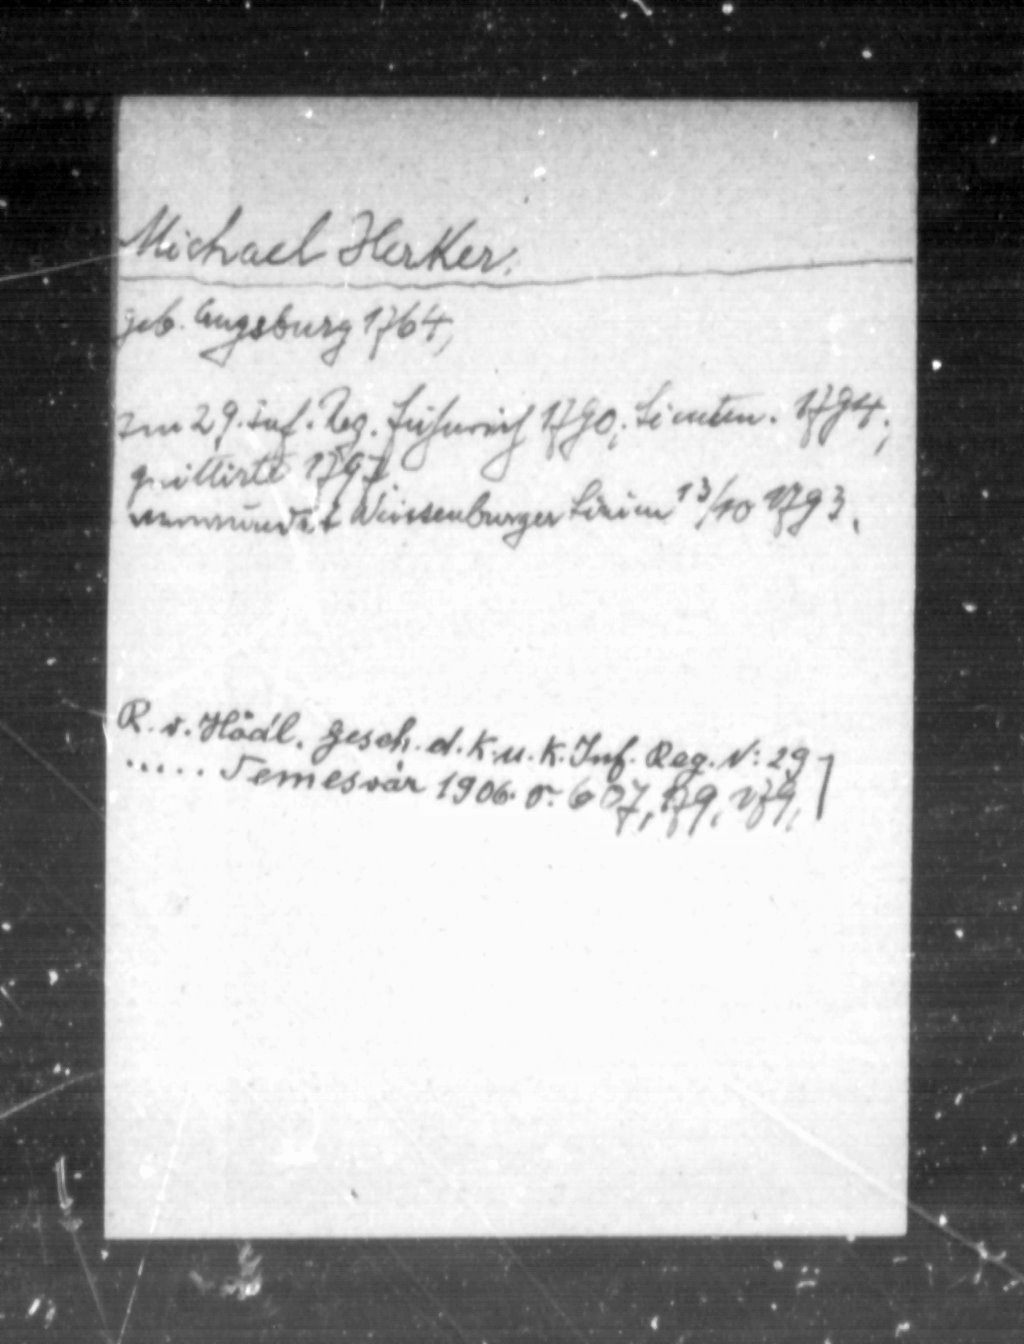 Michael Herker.
geb. Augsburg 1764,
im 29. Inf. Reg. Fähnrich 1790, Lieuten. 1794,
quittirte 1797
verwundet Weissenburger Linien 13/10 1793.
R. v. Hödl. Gesch. d. K. u. K. Inf. Reg. N: 29
..... Temesvár 1906. S. 607, 179,